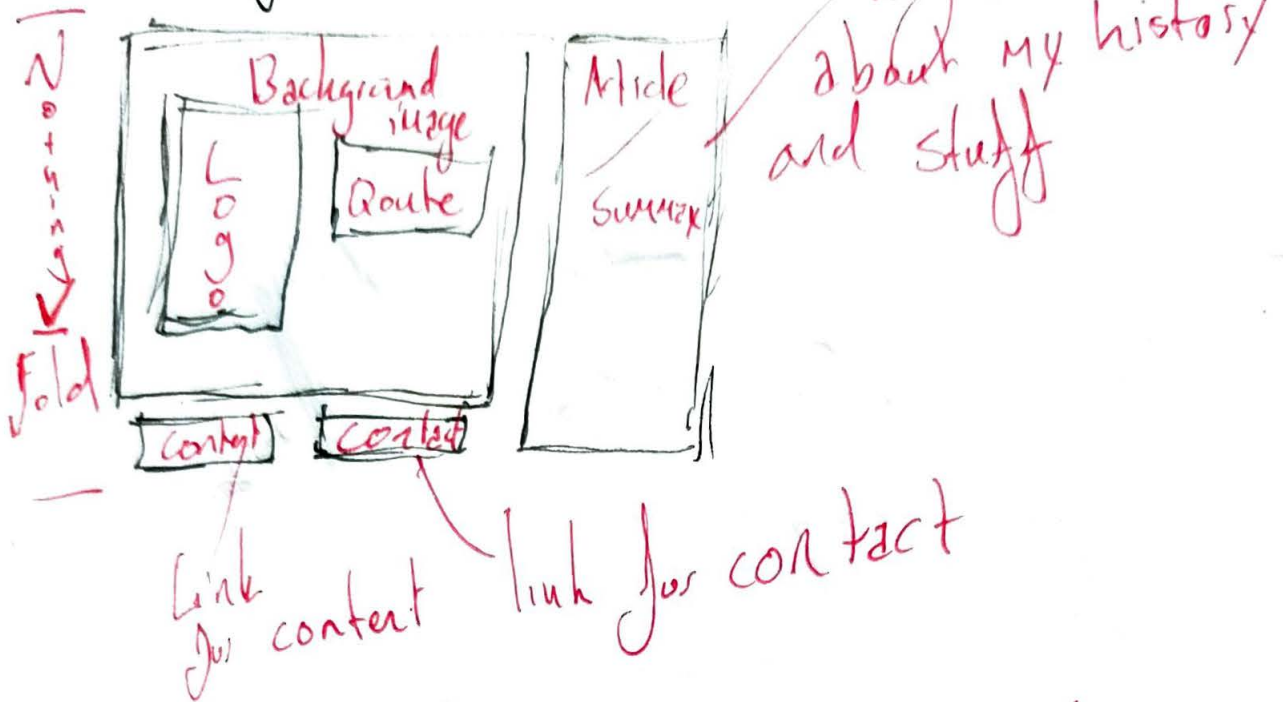 Nothing
Fold
Background
image
Logo
Qoute
Article
Summary
about my history
and stuff
Content
Contact
Link
for content
link for contact